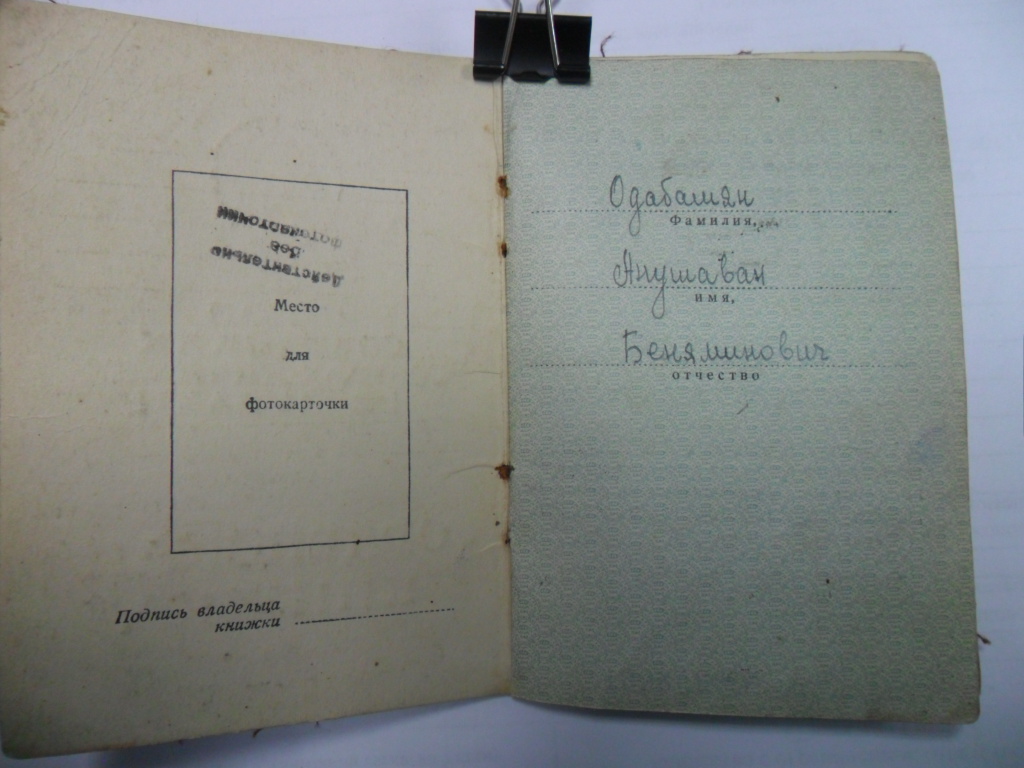 Действительно
без
фотокарточки
Место
для
фотокарточки
Подпись владельца
книжки
Одабашян
Фамилия,
Анушаван
имя,
Беняминович
отчество